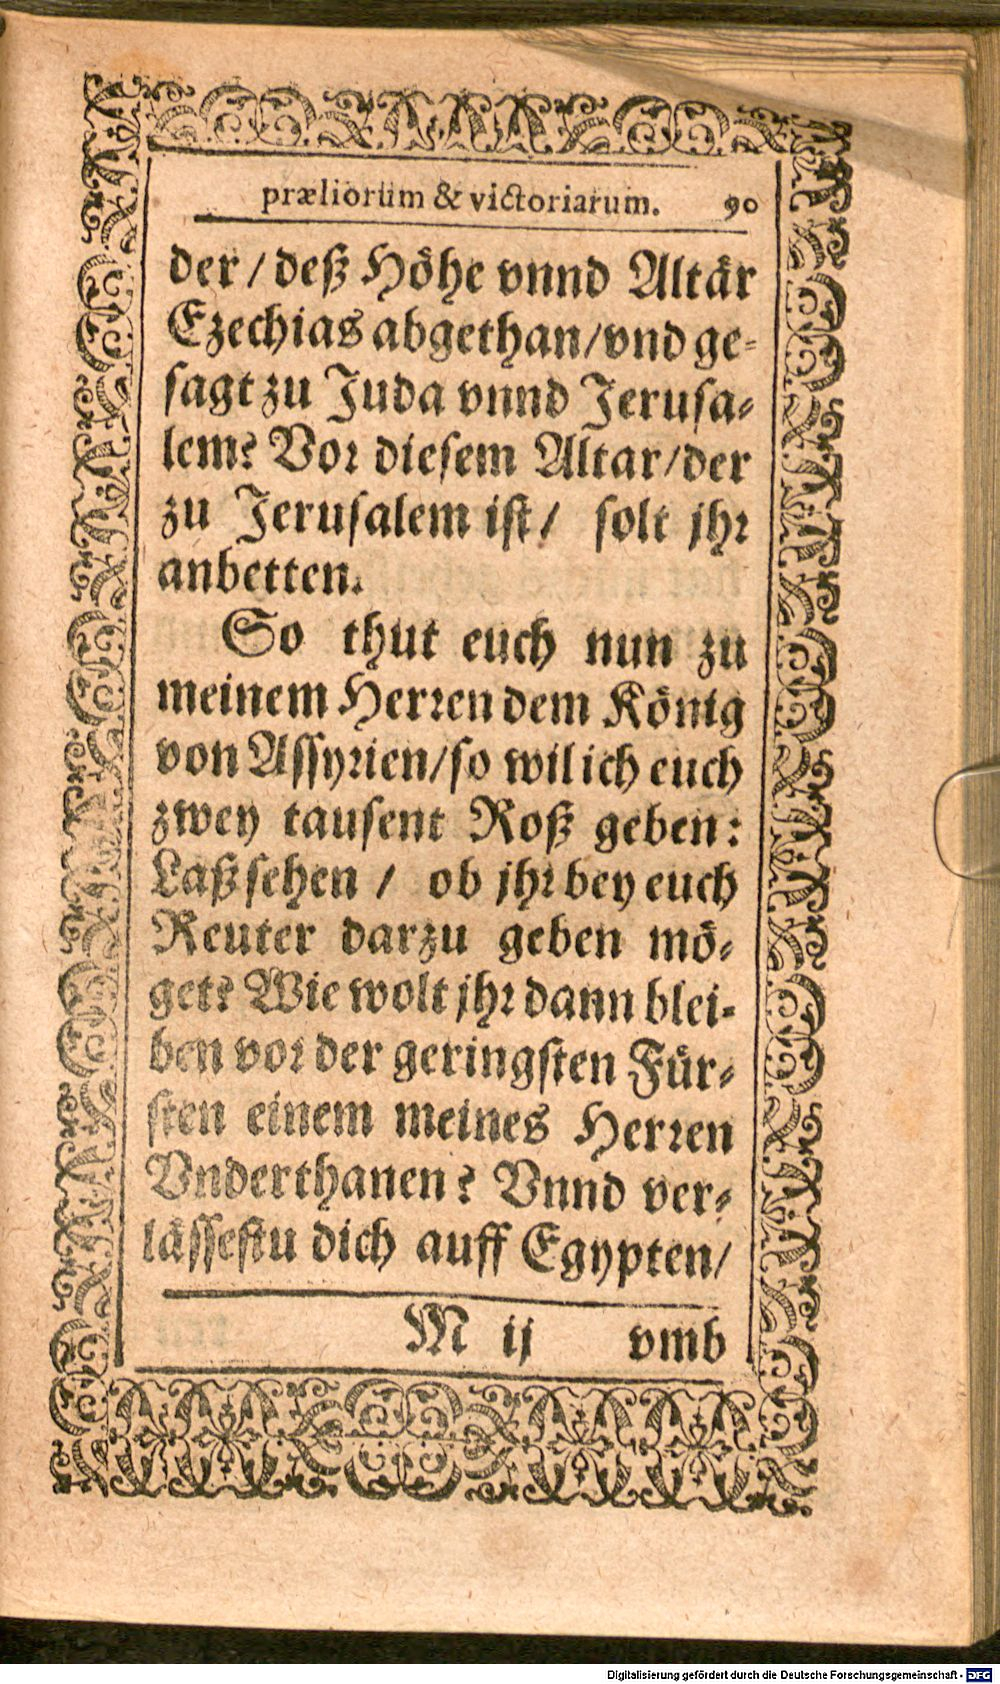 præliorum & victoriarum. 90
der / deß Höhe vnnd Altär
Ezechias abgethan / vnd ge-
sagt zu Juda vnnd Jerusa-
lem? Vor diesem Altar / der
zu Jerusalem ist / solt jhr
anbetten.
So thut euch nun zu
meinem Herren dem König
von Assyrien / so wil ich euch
zwey tausent Roß geben:
Laß sehen / ob jhr bey euch
Reuter darzu geben mö-
get? Wie wolt jhr dann blei-
ben vor der geringsten Für-
sten einem meines Herren
Vnderthanen? Vnnd ver-
lässestu dich auff Egypten /
M ij vmb
Digitalisierung gefördert durch die Deutsche Forschungsgemeinschaft - DFG